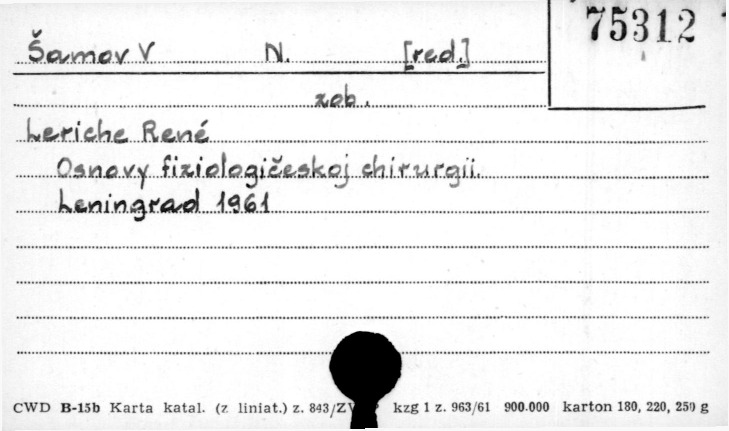 75312
Šamov V N. [red.]
zob.
Leriche René
Osnovy fiziologičeskoj chirurgii.
Leningrad 1961
CWD B-15b Karta katal. (z liniat.) z. 843/ZV kzg 1 z. 963/61 900.000 karton 180, 220, 250 g